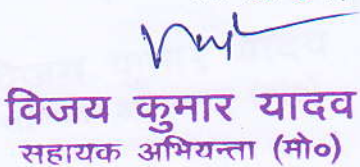 विजय कुमार यादव
सहायक अभियन्ता (मो०)